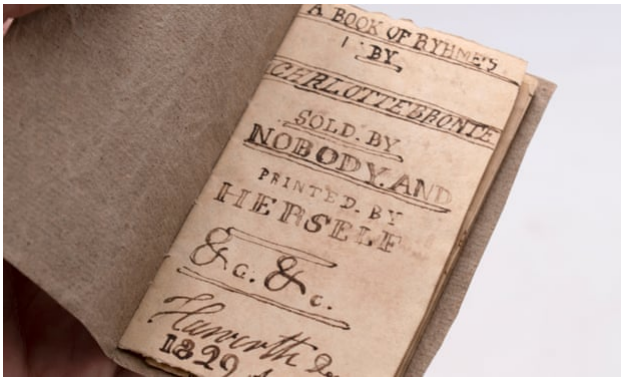 A BOOK OF RYHMES
BY
CHARLOTTE BRONTE
SOLD. BY
NOBODY. AND
PRINTED. BY
HERSELF
& G. & c.
Haworth
1829